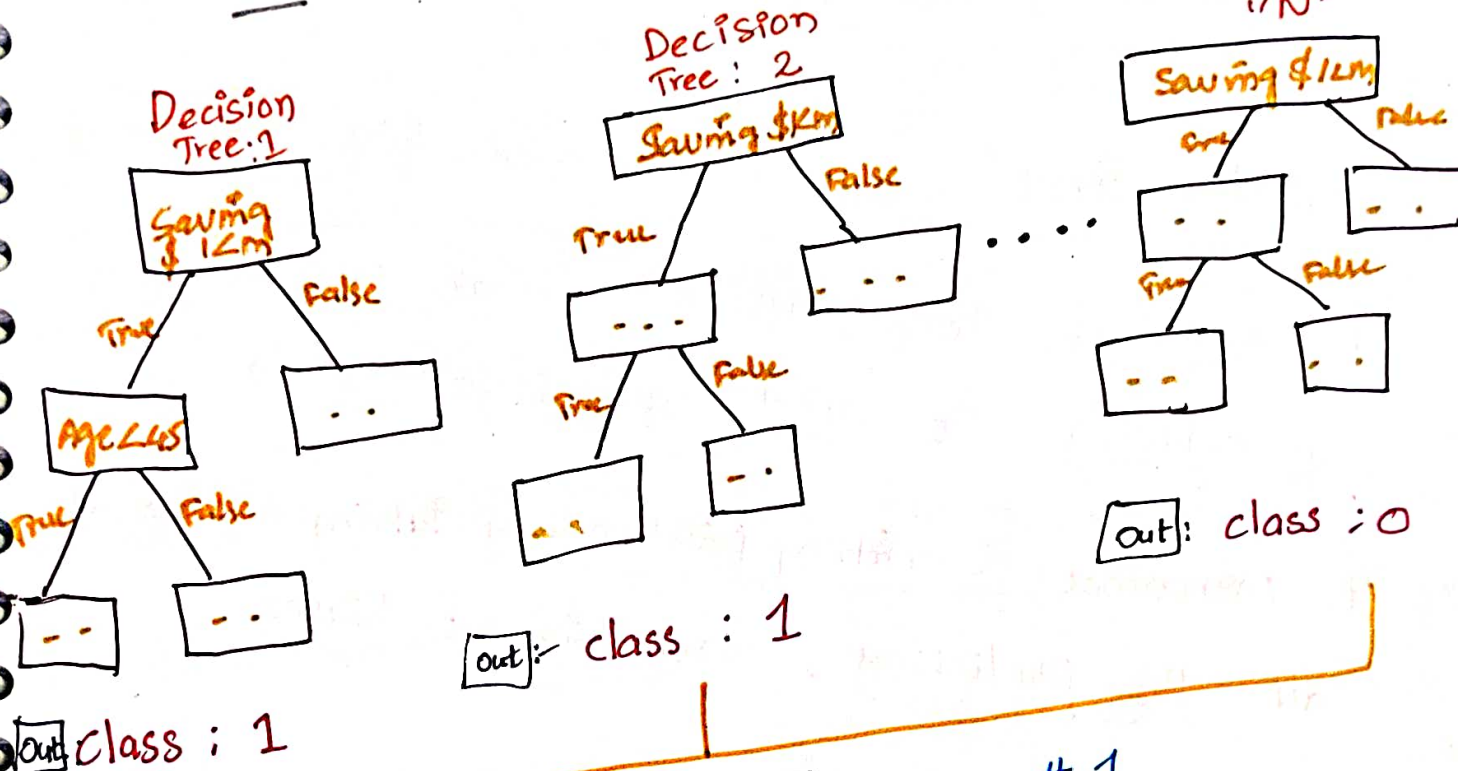 Decision
Tree: 1
Saving
$ 1Km
True
False
Age<45
- -
True
False
- -
- -
out class : 1
Decision
Tree : 2
Saving $Km
True
False
- - -
- - -
True
False
- -
- -
out :- class : 1
. . . . .
Saving $1Km
True
False
- -
- -
True
False
- -
- -
out : class : 0
# 1